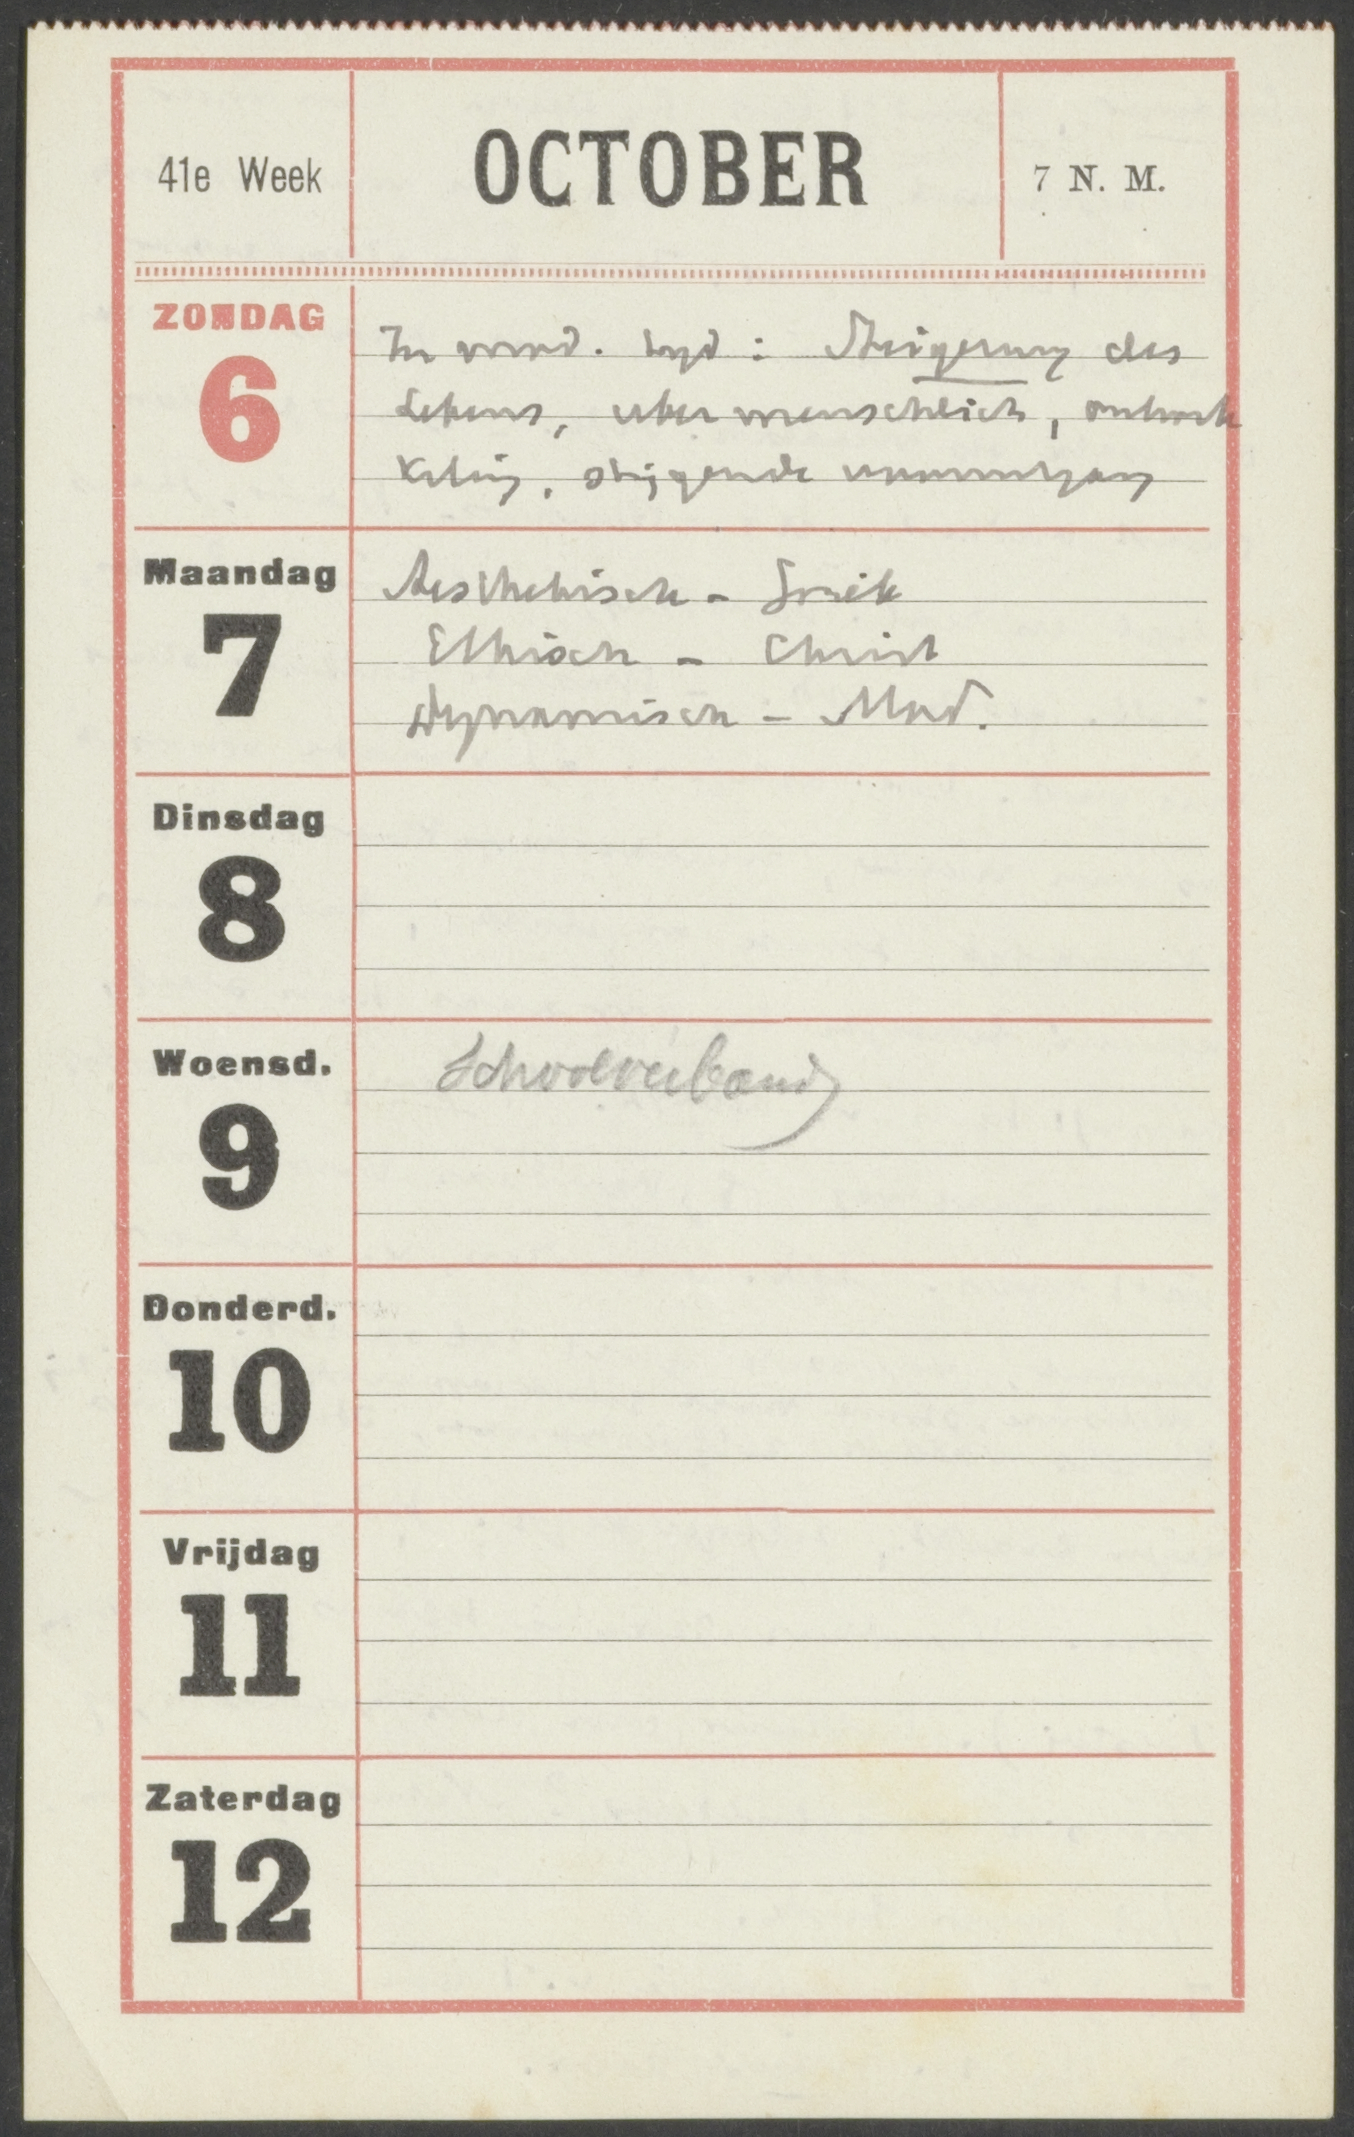 41e Week
OCTOBER
7 N. M.
ZONDAG
6
In mod. tijd : Steigerung des
Lebens, übermenschlich, ontwik
keling, stijgende
Maandag
7
Aesthetisch - Griek
Ethisch - Christ
Dynamisch - Mod.
Dinsdag
8
Woensd.
9
Schoolverband
Donderd.
10
Vrijdag
11
Zaterdag
12